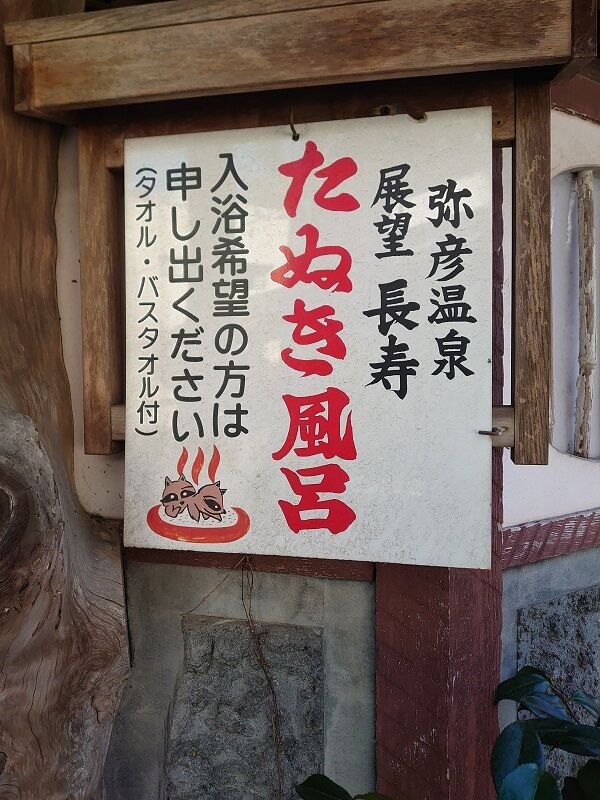 弥彦温泉
展望 長寿
たぬき風呂
入浴希望の方は
申し出ください
（タオル・バスタオル付）